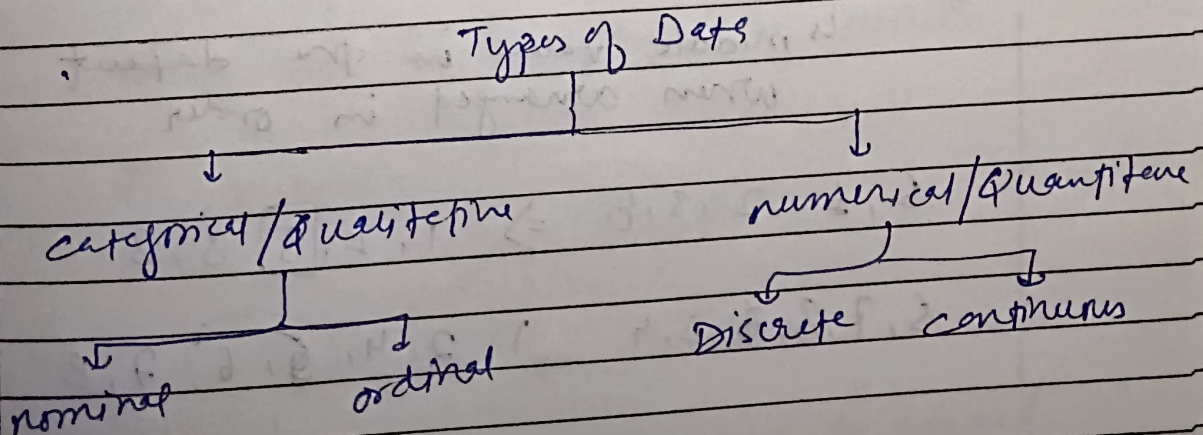 Types of Data
categorical/Qualitative
numerical/Quantitave
nominal
ordinal
Discrete
continuous